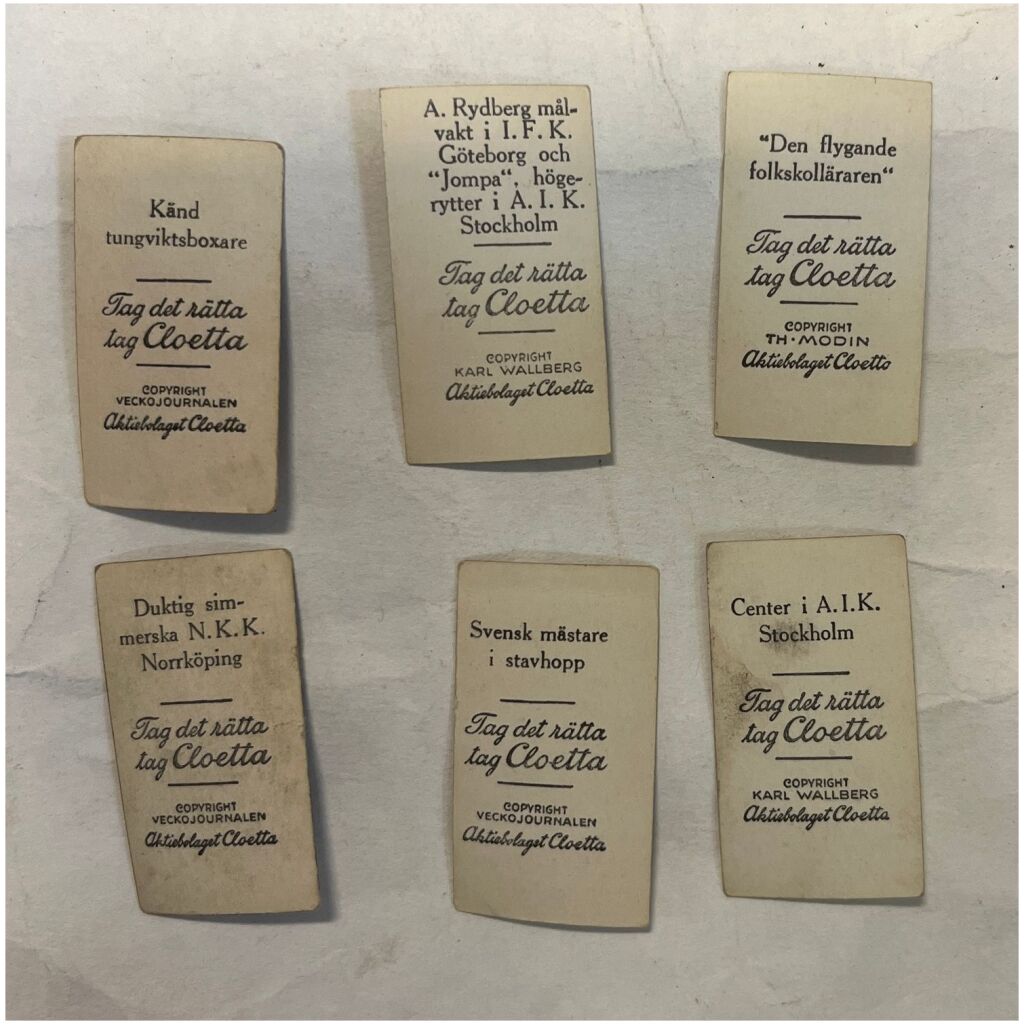 Känd
tungviktsboxare
Tag det rätta
tag Cloetta
COPYRIGHT
VECKOJOURNALEN
Aktiebolaget Cloetta
A. Rydberg mål-
vakt i I. F. K.
Göteborg och
“Jompa“, höge-
rytter i A. I. K.
Stockholm
Tag det rätta
tag Cloetta
COPYRIGHT
KARL WALLBERG
Aktiebolaget Cloetta
“Den flygande
folkskolläraren“
Tag det rätta
tag Cloetta
COPYRIGHT
TH·MODIN
Aktiebolaget Cloetta
Duktig sim-
merska N. K. K.
Norrköping
Tag det rätta
tag Cloetta
COPYRIGHT
VECKOJOURNALEN
Aktiebolaget Cloetta
Svensk mästare
i stavhopp
Tag det rätta
tag Cloetta
COPYRIGHT
VECKOJOURNALEN
Aktiebolaget Cloetta
Center i A. I. K.
Stockholm
Tag det rätta
tag Cloetta
COPYRIGHT
KARL WALLBERG
Aktiebolaget Cloetta